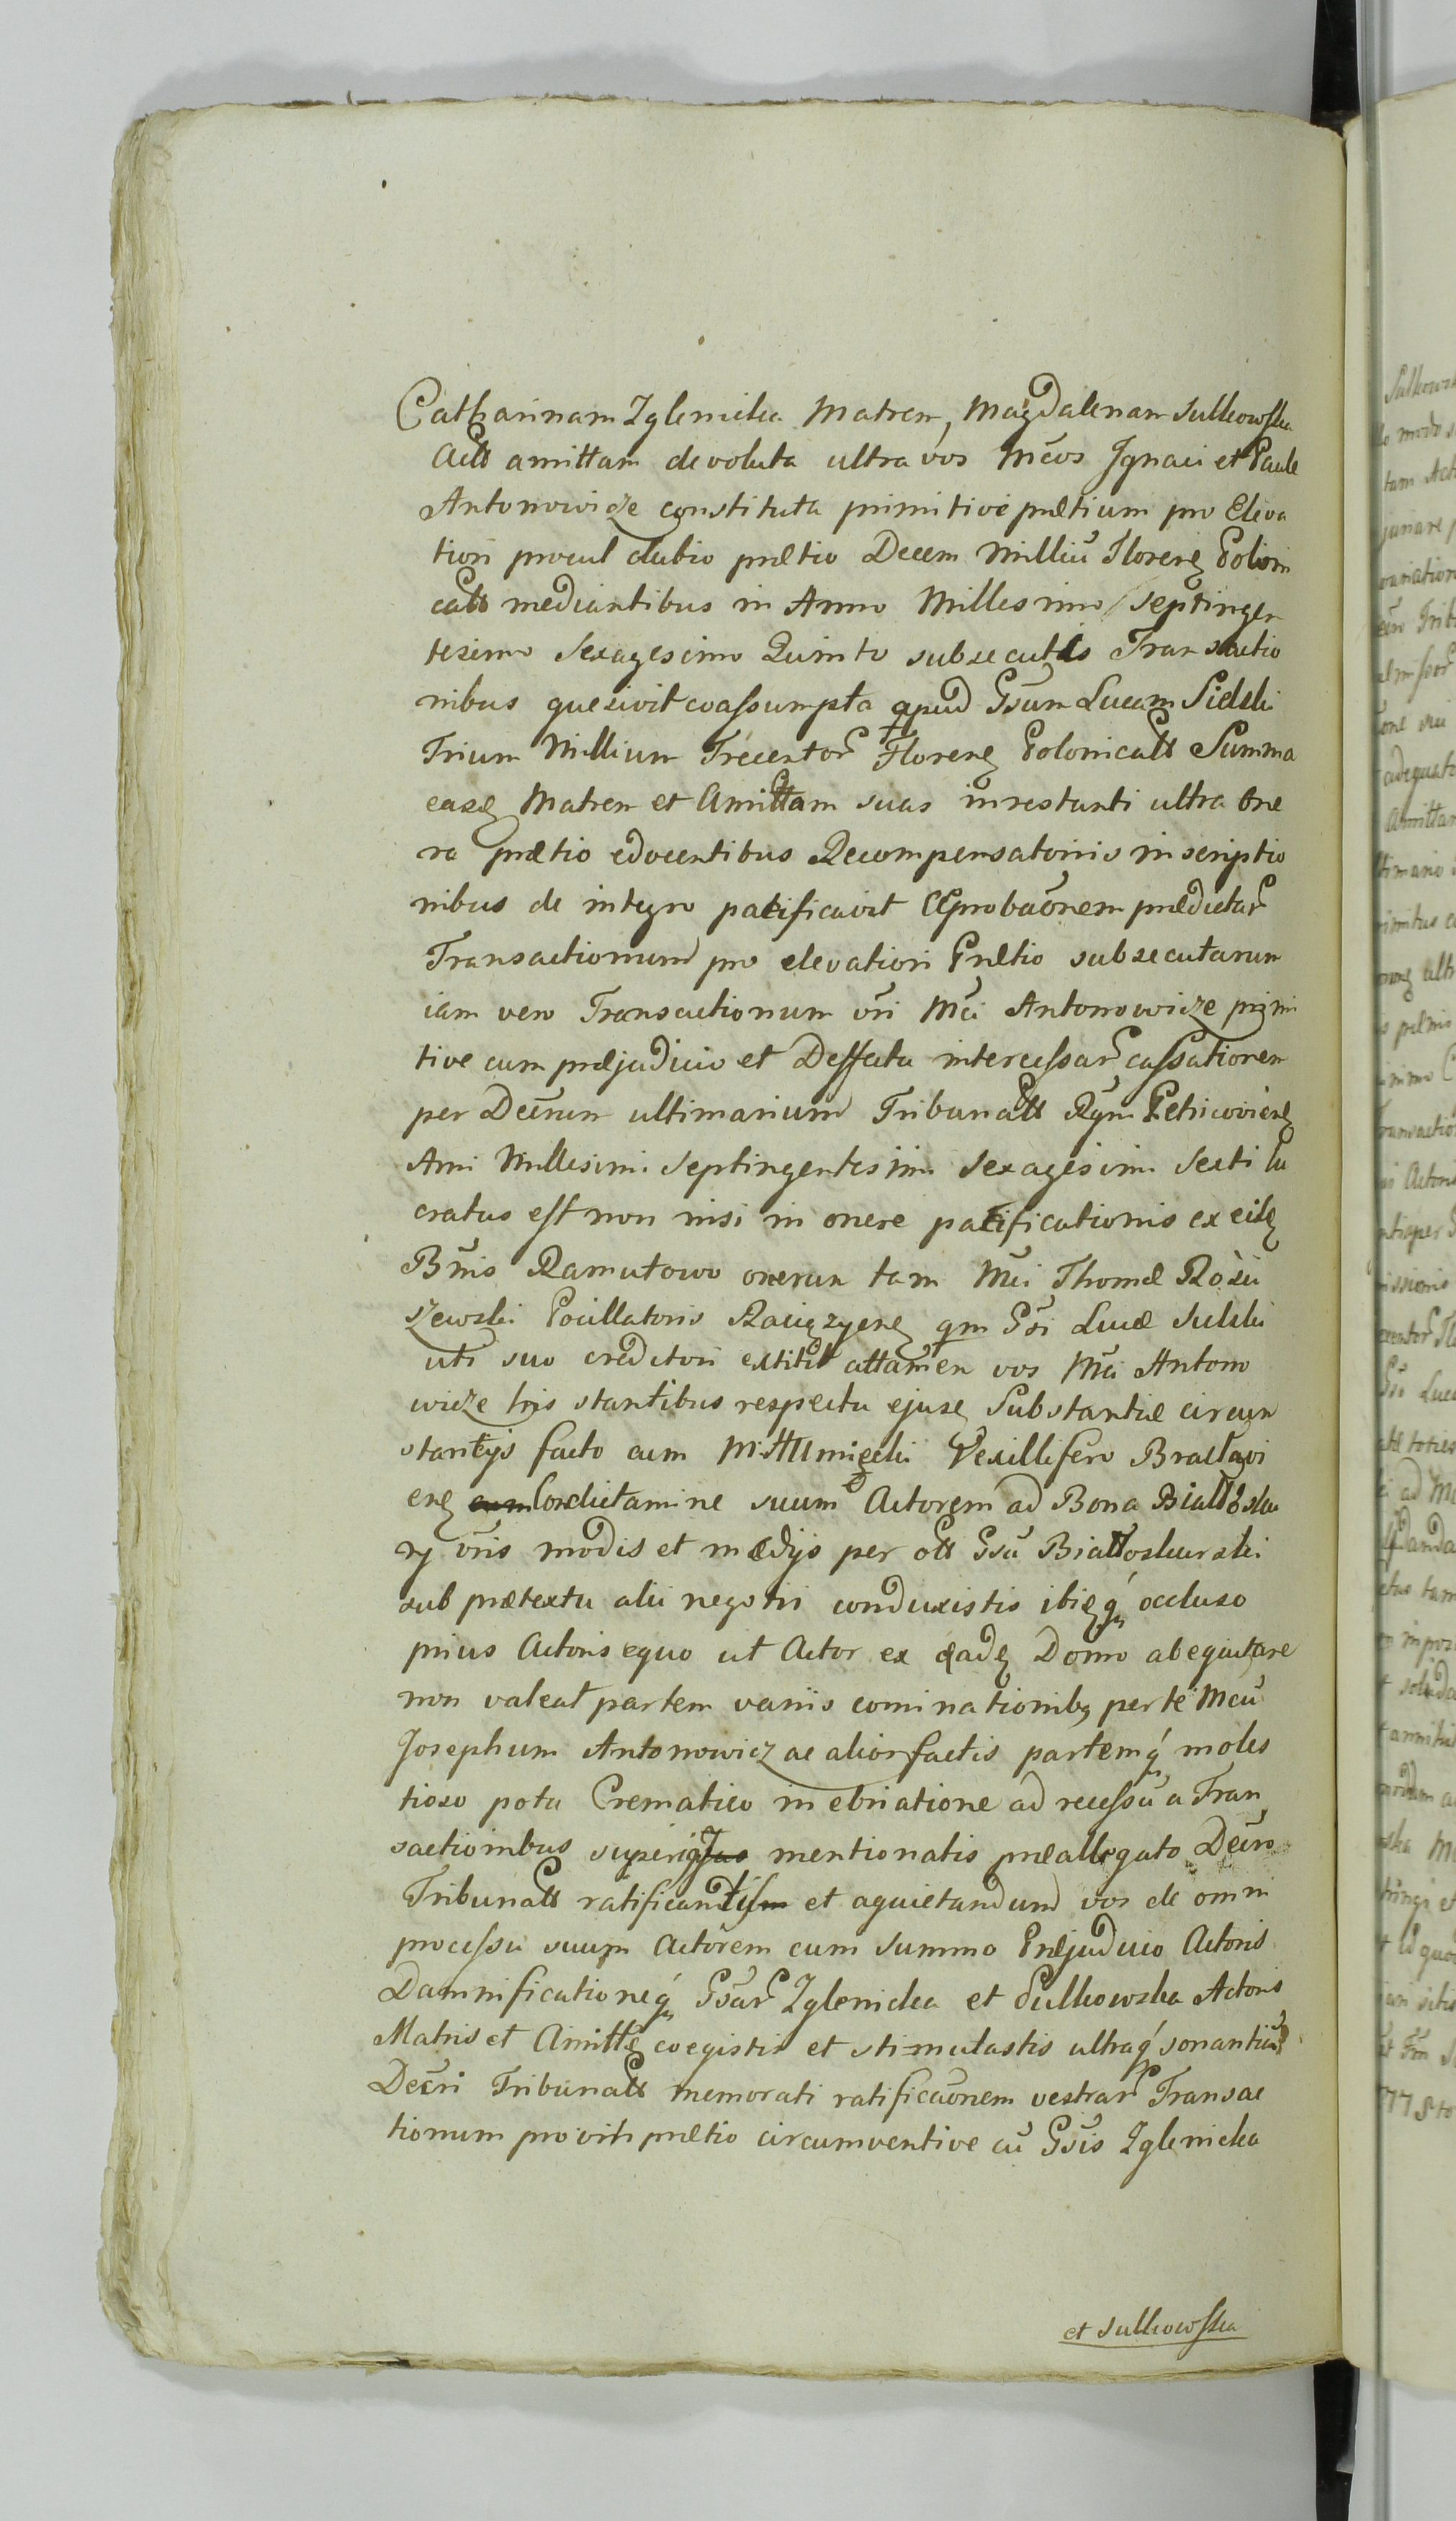 Catharinam Zglenicka Matrem, Magdalenam Sulkowska
Actt amittam devoluta ultra vos Mcos Jgnaci et Paule
Antonowicze constituta primitive prætium pro Eleva
tiori procul dubio prætio Decem Milliũ Floreng Polon
catt mediantibus in Anno Millesimo Septingen
tesimo Sexagesimo Quinto subsecutis Transactio
nibus quesivit coassumpta apud Gsum Lucam
Trium Millium Trecentor Floreng Polonicatt Summa
easq Matrem et Amittam suas inrestanti ultra one
ra prætio edocentibus Recompensatoriis inscriptio
nibus de integro pacificavit Aprobãonem prædictar
Transactionum pro elevatiori Prætio subsecutarum
iam vero Transactionum vri Mci Antonowicze primi
tive cum præjudicio et Deffectu intercessar cassationem
per Decrum ultimarium Tribunatt Rgni Petricovieng
Anni Millesimi Septingentesimi Sexagesimi Sexti lu
cratus est non nisi in onere pacificationis ex eisdg
Bnis Ramutowo onerum tam Mci Thomæ Rosci
szewski Pocillatoris Raciązyeng qm Gsi Lucæ
uti suo creditori extitit attamen vos Mci Antono
wicze his stantibus respectu ejusg Substantiæ circum
stantijs facto cum Vexillifero Bractavi
eng Condictamine suum Actorem ad Bona Biattosku
ry vris modis et medijs per ott Gsũ Biattoskurski
sub prætextu alii negotii conduxistis ibigq́ occluso
prius Actoris equo ut Actor ex eadg Domo abequitare
non valeat partem variis cominationibg per te Mcũ
Josephum Antonowicz ac alior factis partemq́ moles
tioso potu Crematico in ebriatione ad recessũ a Tran
sactionibus superig mentionatis præallegato Decro
Tribunatt ratificandis et aquietandum vos de omni
processu suum Actorem cum summo Præjudicio Actoris
Damnificationeq́ Gsar Zglenicka et Sulkowska Actoris
Matris et Amittg coegistis et stimulastis ultraq́ sonantiũ
Decri Tribunatt memorati ratificãonem vestrar Transac
tionum pro vili prætio circumventive cũ Gsis Zglenicka
et Sulkowska